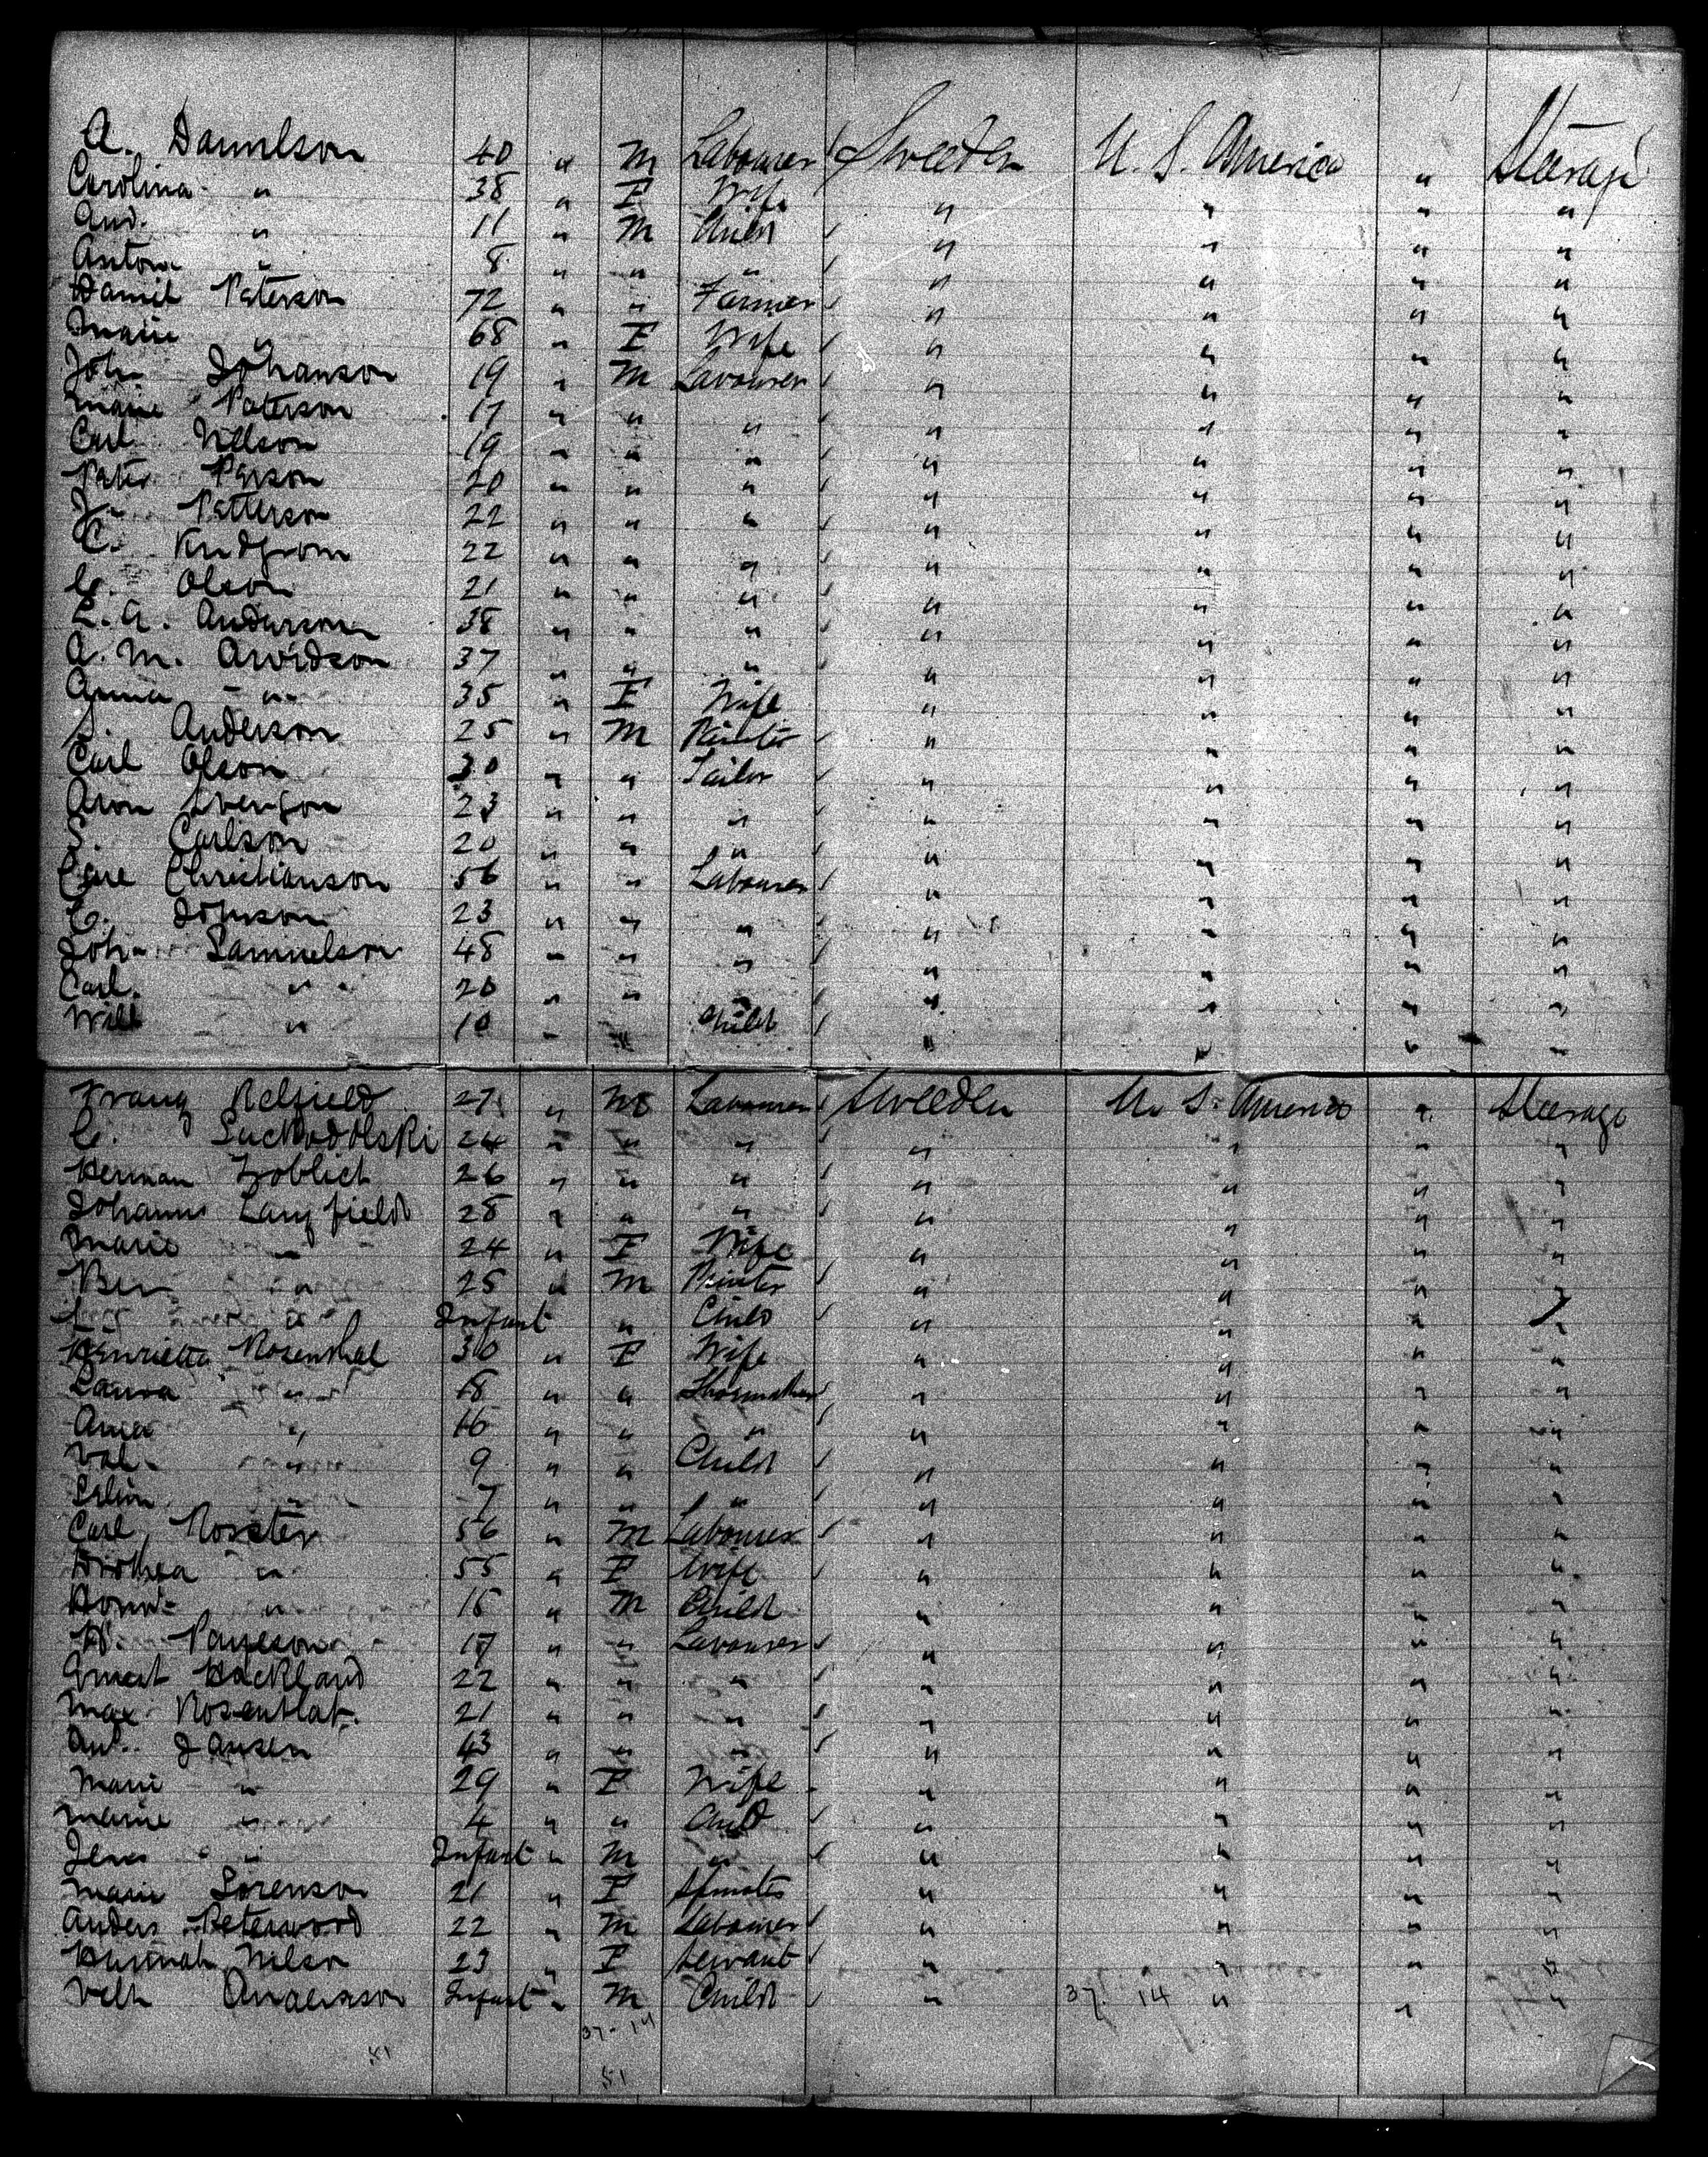 A. Danielson 40 " M Labourer Sweeden U. S. America " Steerage
Carolina " 38 " F Wife " " " "
And. " 11 " M Child " " " "
Anton " 8 " " " " " " "
Daniel Paterson 72 " " Farmer " " " "
Marie " 68 " F Wife " " " "
John Johanson 19 " M Labourer " " " "
Marie Paterson 17 " " " " " " "
Carl Nillson 19 " " " " " " "
Peter Person 20 " " " " " " "
J. Patterson 22 " " " " " " "
C. 22 " " " " " " "
C. Olson 21 " " " " " " "
L. A. Anderson 38 " " " " " " "
A. M. Arvidson 37 " " " " " " "
Anna " 35 " F Wife " " " "
Anderson 25 " M Painter " " " "
Carl Olson 30 " " Tailor " " " "
Aron Svenson 23 " " " " " " "
S. Carlson 20 " " " " " " "
Christianson 56 " " Labourer " " " "
C. Johnson 23 " " " " " " "
Joh Samuelson 48 " " " " " " "
Carl " 20 " " " " " " "
Will " 10 " " Child " " " "
Franz Relfield 27 " M Labourer Sweeden U. S. America " Steerage
C. Suckodolski 24 " " " " " " "
Herman Froblich 26 " " " " " " "
Johanns Langfield 28 " " " " " " "
Marie " 24 " F Wife " " " "
Ben " 25 " M Painter " " " "
" Infant " Child " " " "
Henrietta Rosenthal 30 " F Wife " " " "
Laura " 18 " " " " " "
Anna " 16 " " " " " " "
Val " 9 " " Child " " " "
" 7 " " " " " " "
Carl Roseter 56 " M Labourer " " " "
Dorothea " 55 " F Wife " " " "
" 15 " M Child " " " "
H. 17 " " Labourer " " " "
Ernest Hackland 22 " " " " " " "
Max Rosenthal 21 " " " " " " "
And. Jansen 43 " " " " " " "
Marie " 29 " F Wife " " " "
Marie " 4 " " Child " " " "
Jens " Infant " M " " " " "
Marie Sorenson 21 " F Spinster " " " "
Anders Peterwood 22 " M Labourer " " " "
Hannah Nilson 23 " F Servant " " " "
Anderson Infant " M Child " 37 14 " " "
37-14
51 51